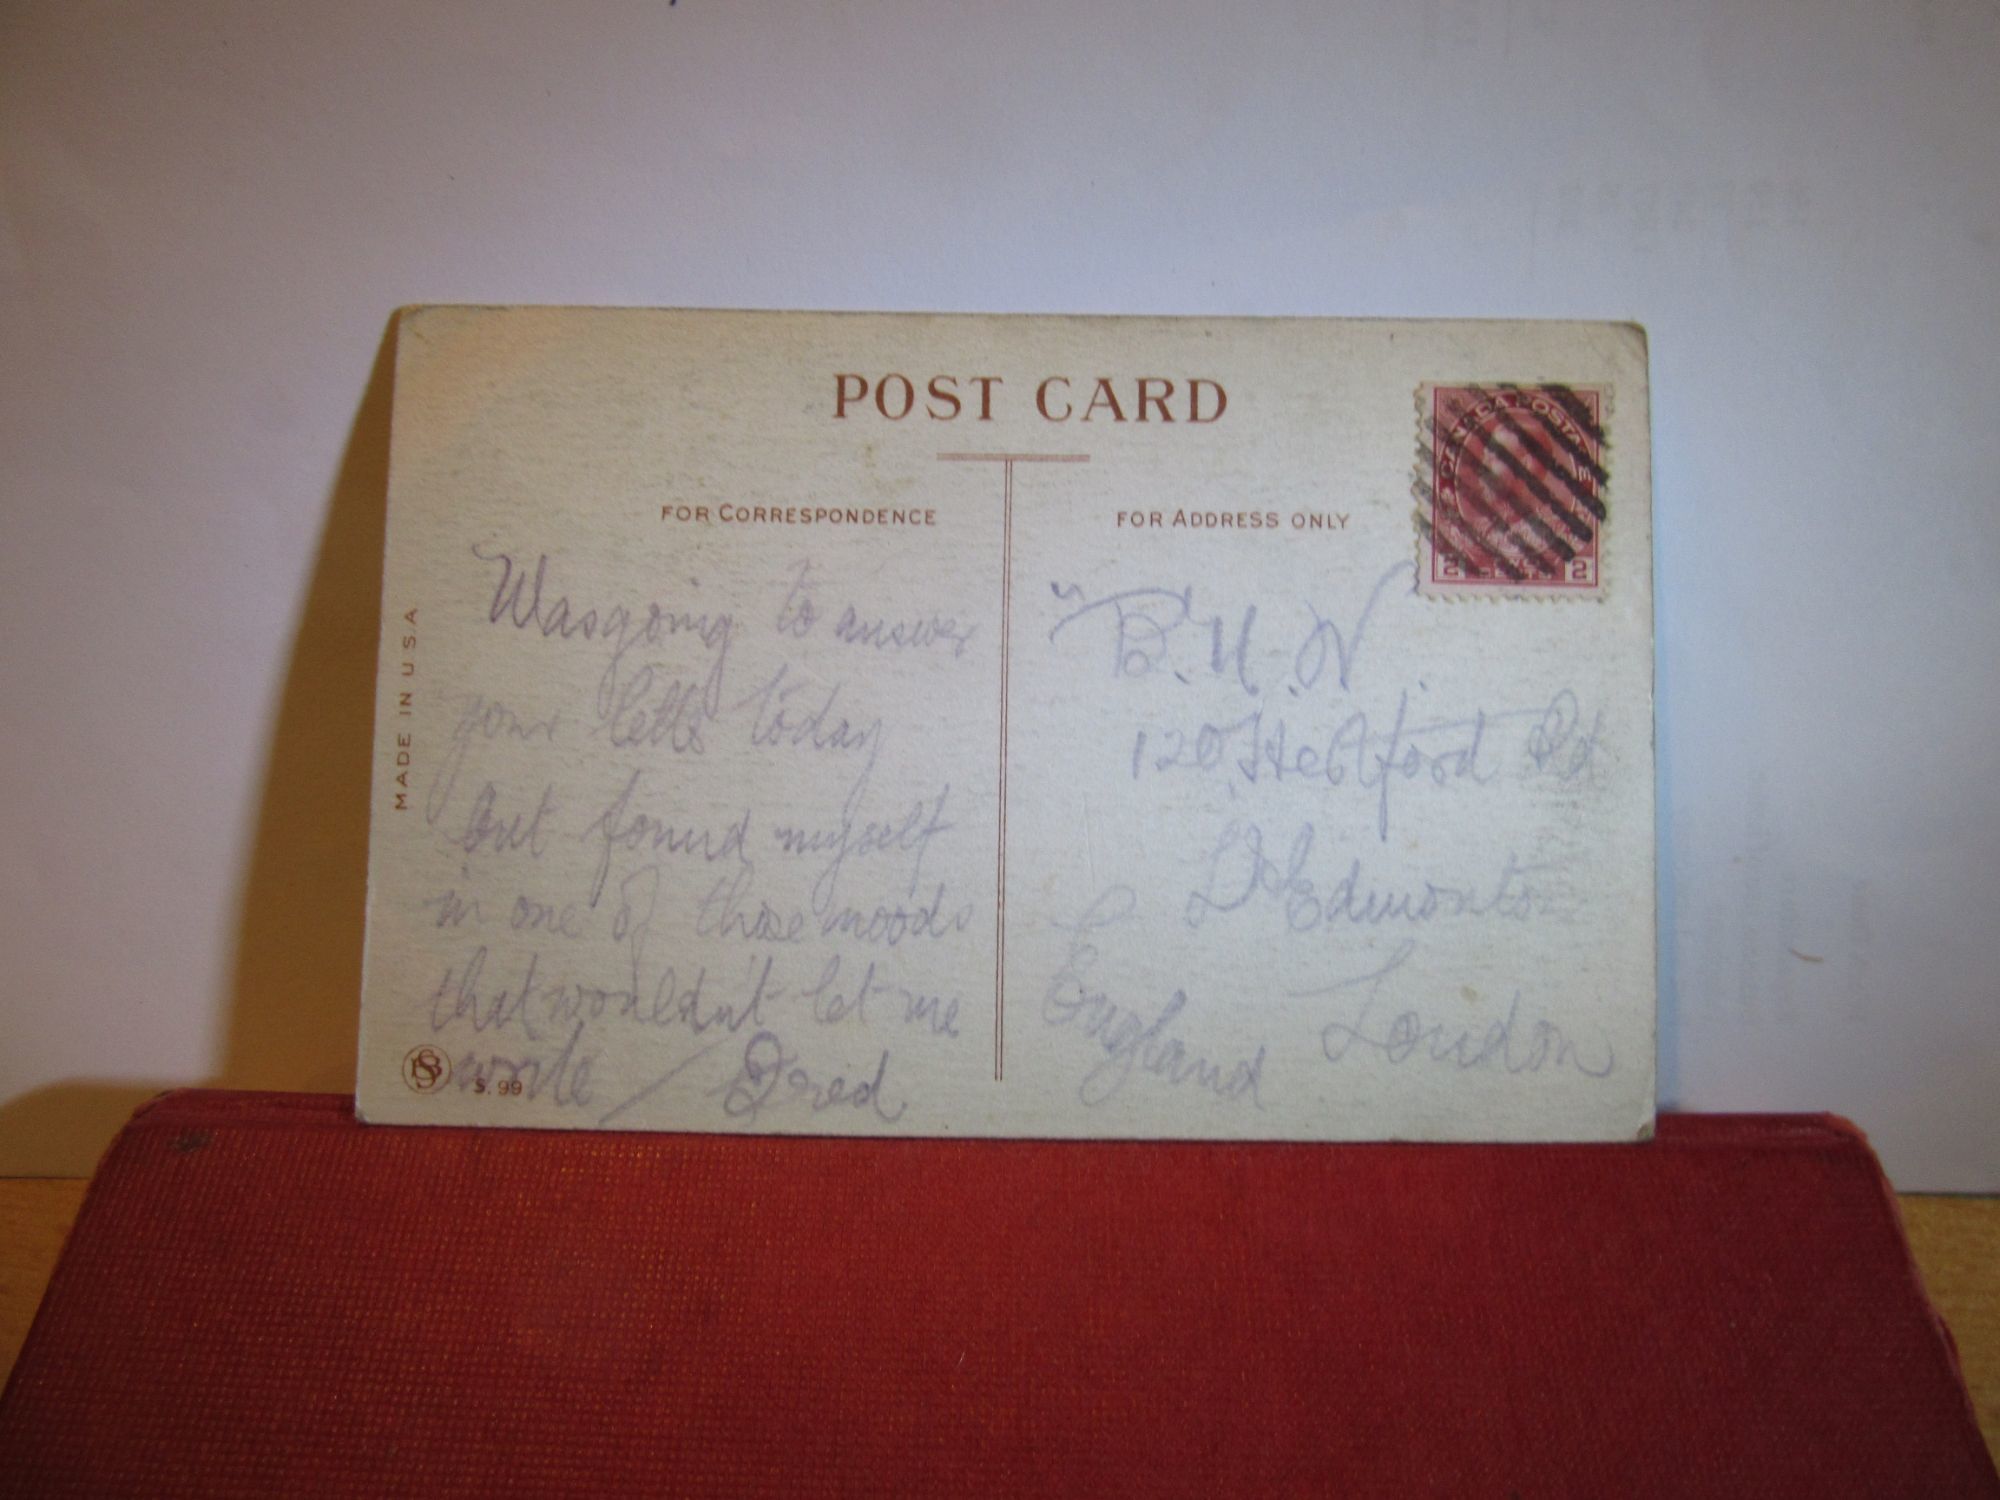 POST CARD
FOR CORRESPONDENCE
FOR ADDRESS ONLY
CANADA POSTAGE
2 CENTS 2
MADE IN USA
Was going to answer
your letts today
but found myself
in one of those moods
that wouldn't let me
write / Fred
S. 99
B. H. W.
120 Hertford Rd
Edmonton
London
England